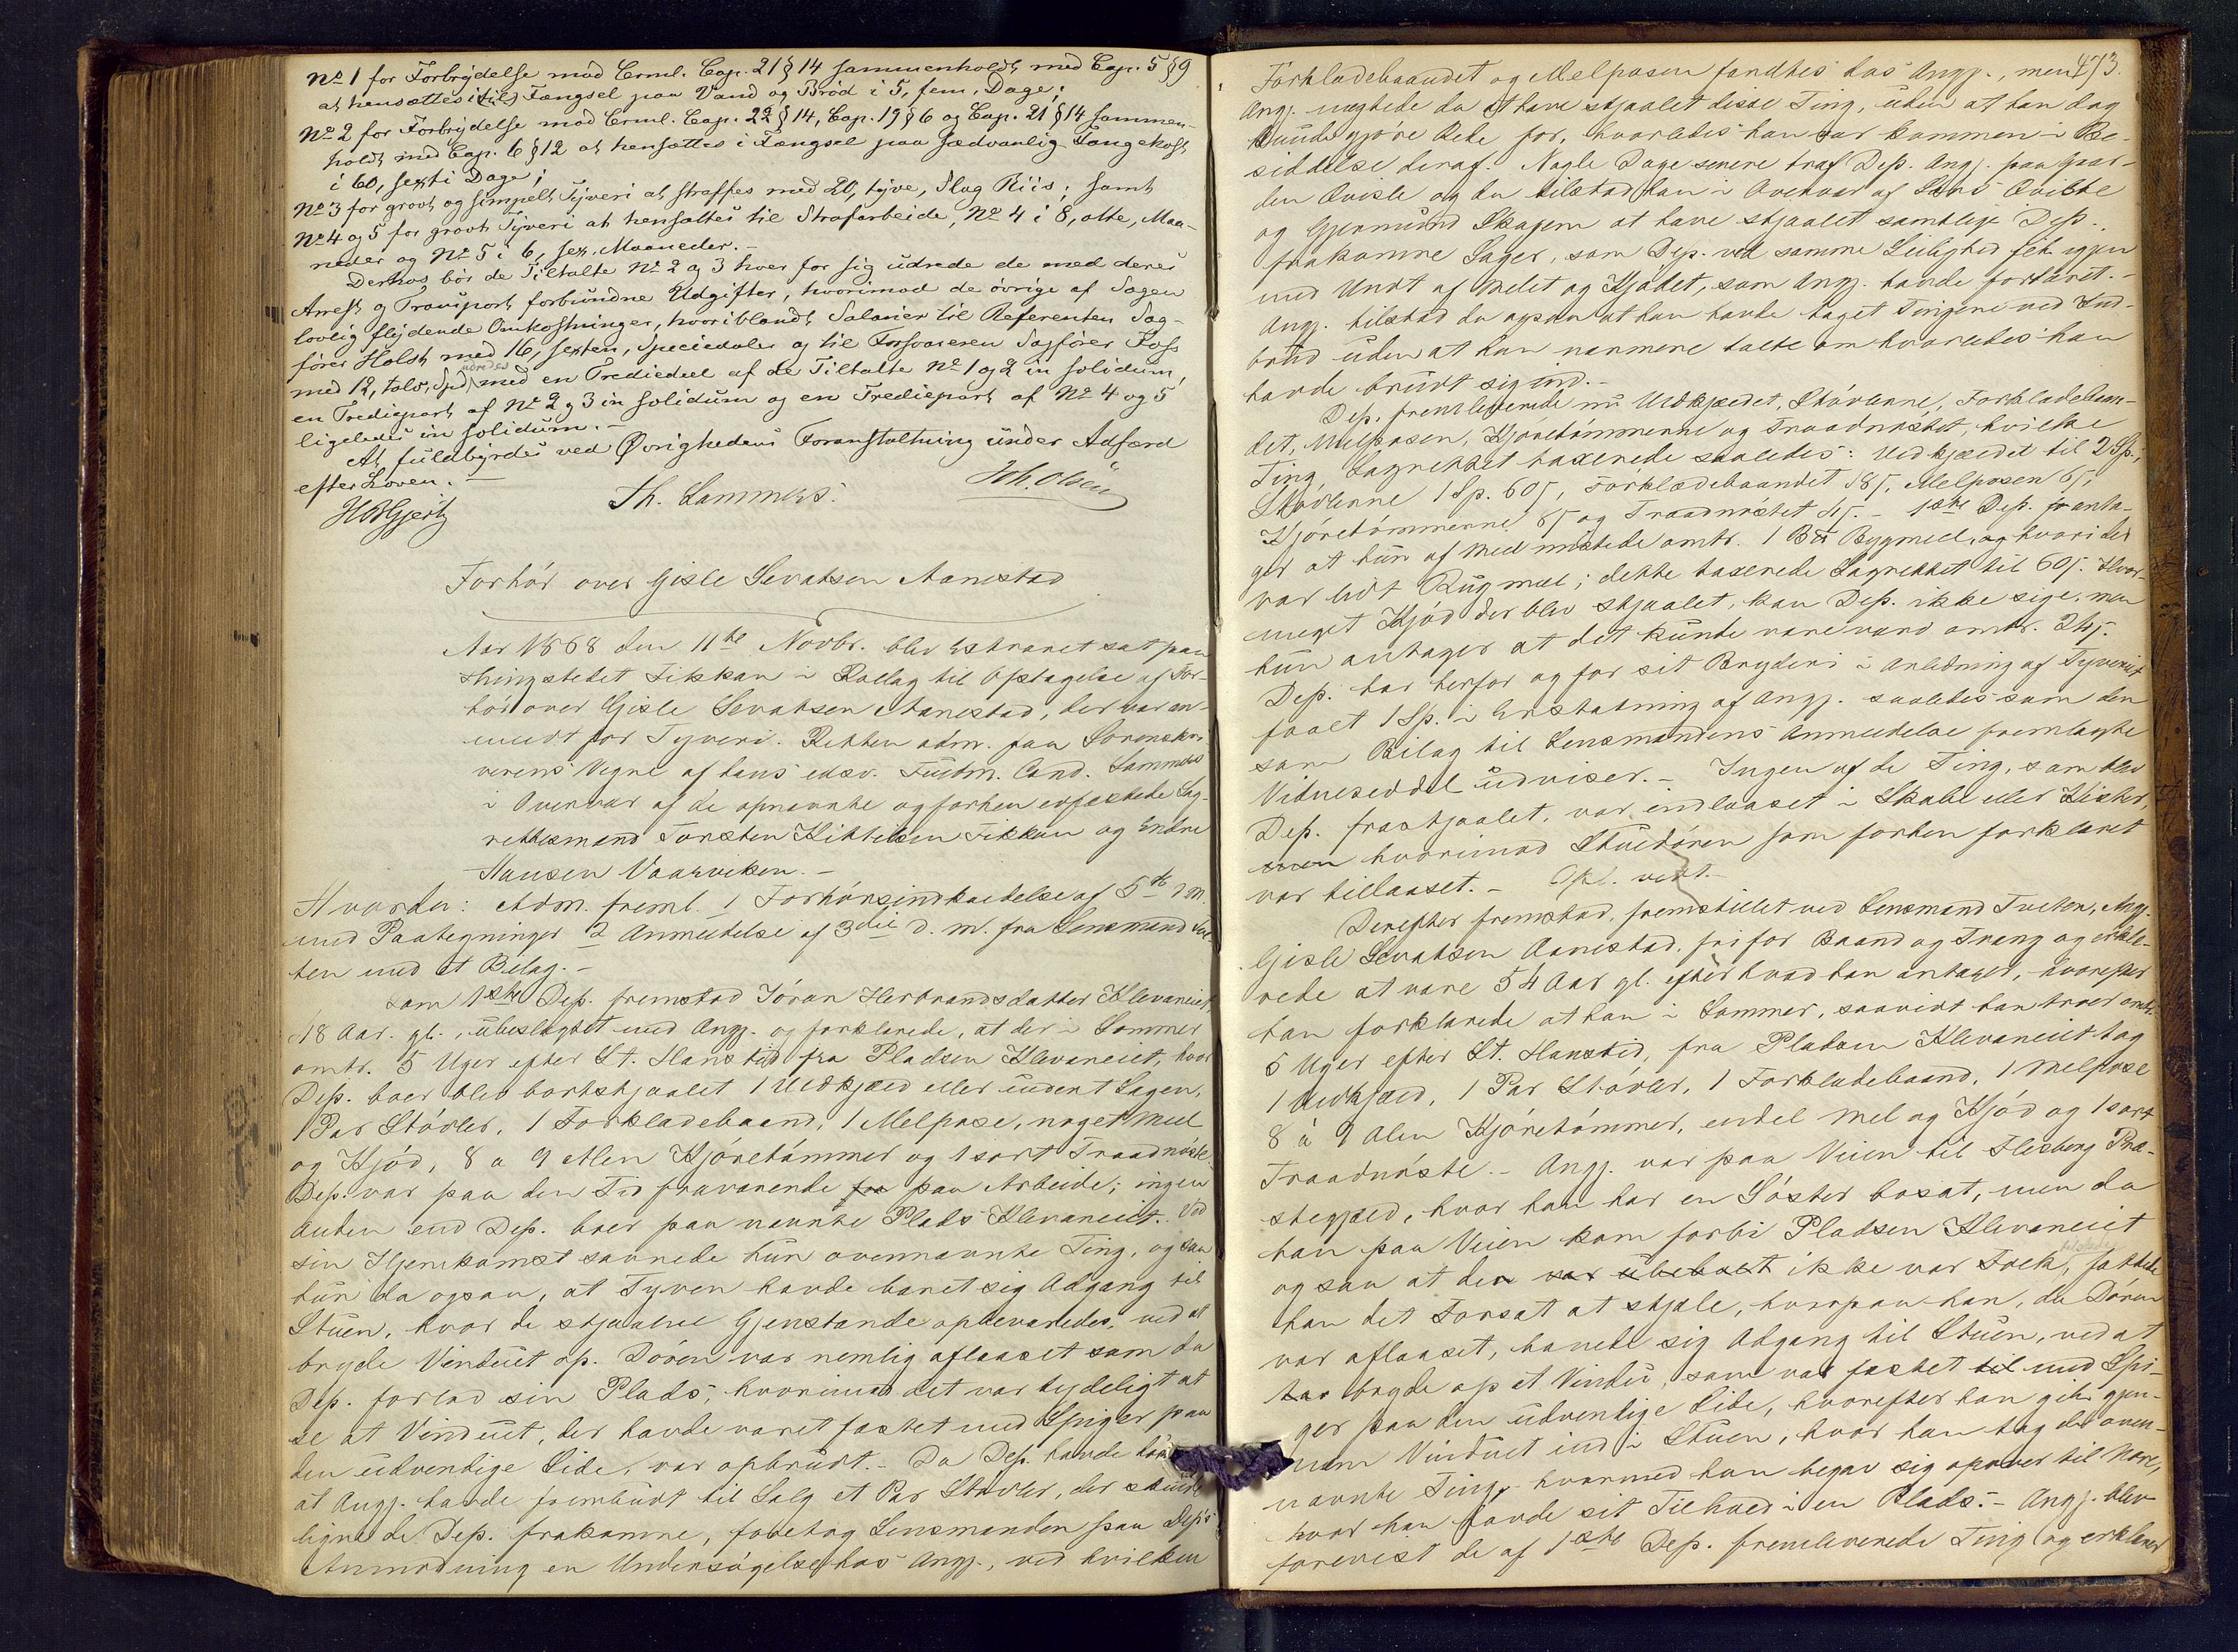 No 1 for Forbrydelse mod Criml. Cap. 21 § 14 sammenholdt med Cap. 5 § 9
at hensættes i (til) Fængsel paa Vand og Brød i 5, fem, Dage;
No 2 for Forbrydelse mod Criml. Cap. 22 § 14, Cap. 19 § 6 og Cap. 21 § 14 sammen-
holdt med Cap. 6 § 12 at hensættes i Fængsel paa sædvanlig Fangekost
i 60, sexti Dage;
No 3 for grovt og simpelt Tyveri at straffes med 20, tyve, Slag Riis; samt
No 4 og 5 for grovt Tyveri at hensættes til Strafarbeide, No 4 i 8, otte, Maa-
neder og No 5 i 6, sex, Maaneder. -
Derhos bør de Tiltalte No 2 og 3 hver for sig udrede de med deres
Arrest og Transport forbundne Udgifter, hvorimod de øvrige af Sagen
lovlig flydende Omkostninger, hvoriblandt Salarier til Referenten Sag-
fører Holst med 16, sexten, Speciedaler og til Forsvareren Sagfører Foss
med 12, tolv, Spd, udredes med en Trediedeel af de Tiltalte No 1 og 2 in solidum,
en Trediepart af No 2 og 3 in solidum og en Trediepart af No 4 og 5
ligeledes in solidum. -
At fuldbyrdes ved Øvrighedens Foranstaltning under Adfærd
efter Loven. -
Th. Lammers. Joh. Olsen
Forhør over Gisle Sevatsen Aanestad
Aar 1868 den 11te Novbr. blev Extraret sat paa
Thingstedet Fikkan i Rollag til Optagelse af For-
hør over Gisle Sevatsen Aanestad, der var an-
meldt for Tyveri. Retten adm. paa Sorenskri-
verens Vegne af hans edsv. Fuldm. Cand. Lammers
i Overvær af de opnævnte og forhen edfæstede Lag-
rettesmænd Torsten Kittilsen Fikkan og Endre
Hansen Vaarviken. -
Hvorda: Adm. freml. 1 Forhørsindkaldelse af 5te d. M.
med Paategninger 2 Anmeldelse af 3die d. M. fra Lensmand Tve-
ten med et Bilag. -
Som 1ste Dep. fremstod Jøran Herbrandsdatter Klevaneiet,
48 Aar. gl., ubeslægtet med Ang. og forklarede, at der i Sommer
omtr. 5 Uger efter St. Hanstid fra Pladsen Klevaneiet, hvor
Dep. boer blev bortstjaalet 1 Uldkjæed eller uden Lagen,
1 Par Støvler, 1 Forklædebaand, 1 Melpose, noget Meel
og Kjød, 8 a 9 Alen Kjøretømmer og 1 sort Traadnøste.
Dep. var paa den Tid fraværende paa Arbeide; ingen
anden end Dep. boer paa nævnte Plads Klevaneiet. Ved
sin Hjemkomst savnede hun ovennævnte Ting, og saa
hun da ogsaa, at Tyven havde banet sig Adgang til
Stuen, hvor de stjaalne Gjenstande opbevaredes, ved at
bryde Vinduet op. Døren var nemlig aflaaset som da
Dep. forlod sin Plads, hvorimod det var tydeligt at
se at Vinduet, der havde været fæstet med Spiger paa
den udvendige Side, var opbrudt. - Da Dep. havde hørt
at Ang. havde frembudt til Salg et Par Støvler, der skulde
ligne de Dep. frakomne, foretog Lensmanden paa Dep's
Anmodning en Undersøgelse hos Ang., ved hvilken
473.
Forklædebaandet og Melposen fandtes hos Ang., men
Ang. negtede da at have stjaalet disse Ting, uden at han dog
kunde gjøre Rede for, hvorledes han var kommen i Be-
siddelse deraf. Nogle Dage senere traf Dep. Ang. paa Gaar-
den Qvisle og da tilstod han i Overvær af Qvisle
og Gjermund Skagen at have stjaalet samtlige Dep.
frakomne Sager, som Dep. ved samme Leilighed fik igjen
med Undt. af Melet og Kjødet, som Ang. havde fortæret. -
Ang. tilstod da ogsaa at han havde taget Tingene ved Ind-
brud uden at han nærmere talte om hvorledes han
havde brudt sig ind. -
Dep. fremleverede nu Uldkjædet, Støvlerne, Forklædebaan-
det, Melposen, Kjøretømmerne og Traadnøstet, hvilke
Ting Lagrettet taxerede saaledes: Uldkjædet til 2 Sp.,
Støvlerne 1 Sp. 60 s, Forklædebaandet 18 s, Melposen 6 s,
Kjøretømmerne 8 s og Traadnøstet 4 s. - 1ste Dep. anta-
ger at hun af Meel mistede omtr. 1 B℔ Bygmeel, og hvori der
var lidt Rugmeel; dette taxerede Lagrettet til 60 s. Hvor-
meget Kjød der blev stjaalet, kan Dep. ikke sige, men
hun antager at det kunde være værd omtr. 24 s.
Dep. har herfor og for sit Bryderi i Anledning af Tyveriet
faaet 1 Sp. i Erstatning af Ang. saaledes som den
som Bilag til Lensmandens Anmeldelse fremlagte
Vidneseddel udviser. - Ingen af de Ting, som blev
Dep. frastjaalet, var indlaaset i Skabe eller Kister,
hvorimod Stuedøren som forhen forklaret
var tillaaset. - Opl. vedt. -
Derefter fremstod, fremstillet ved Lensmand Tveten, Ang.
Gisle Sevatsen Aanestad, fri for Baand og Tvang og erklæ-
rede at være 54 Aar gl. efter hvad han antager, hvorefter
han forklarede at han i Sommer, saavidt han troer omtr.
5 Uger efter St. Hanstid, fra Pladsen Klevaneiet tog
1 Uldkjæed, 1 Par Støvler, 1 Forklædebaand, 1 Melpose
8 à 9 Alen Kjøretømmer, endel Mel og Kjød og 1 sort
Traadnøste. - Ang. var paa Veien til Flesberg Præ-
stegjæld, hvor han har en Søster bosat, men da
han paa Veien kom forbi Pladsen Klevaneiet
og saa at der var ubeboet ikke var Folk tilstede, fattede
han det Forsæt at stjæle, hvorpaa han, da Døren
var aflaaset, banede sig Adgang til Stuen, ved at
bryde op et Vindu, som var fæstet til med Spi-
ger paa den udvendige Side, hvorefter han gik gjen-
nem Vinduet ind i Stuen, hvor han tog de oven-
nævnte Ting, hvormed han begav sig opover til Nore,
hvor han havde sit Tilhold i en Plads. - Ang. blev
forevist de af 1ste Dep. fremleverede Ting og erklærer